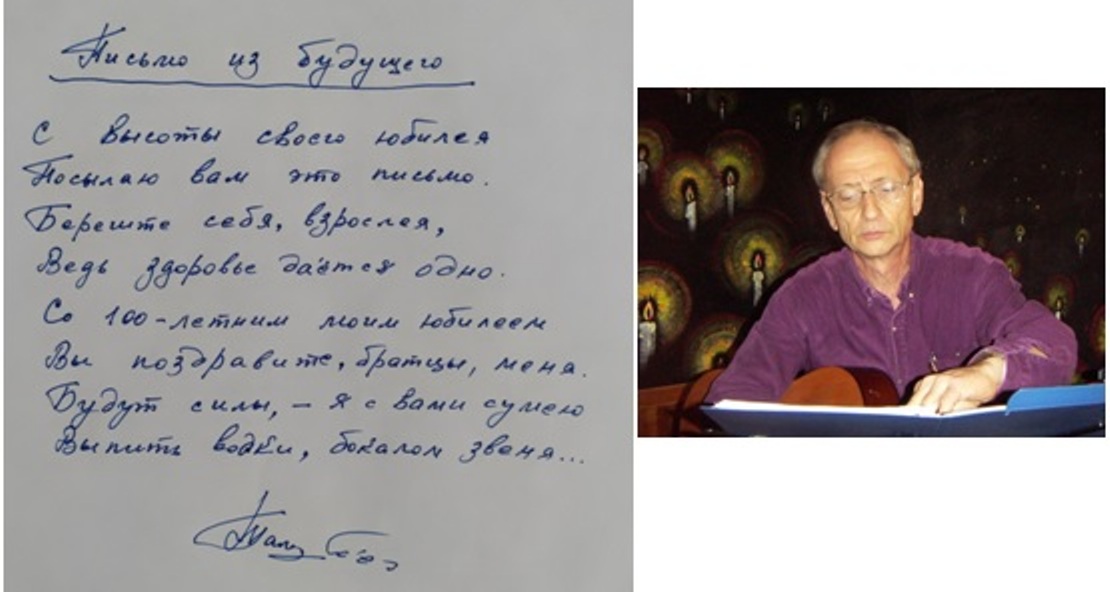 Письмо из будущего
С высоты своего юбилея
Посылаю вам это письмо.
Берегите себя, взрослея,
Ведь здоровье даётся одно.
Со 100-летним моим юбилеем
Вы поздравите, братцы, меня.
Будут силы, – я с вами сумею
Выпить водки, бокалом звеня...